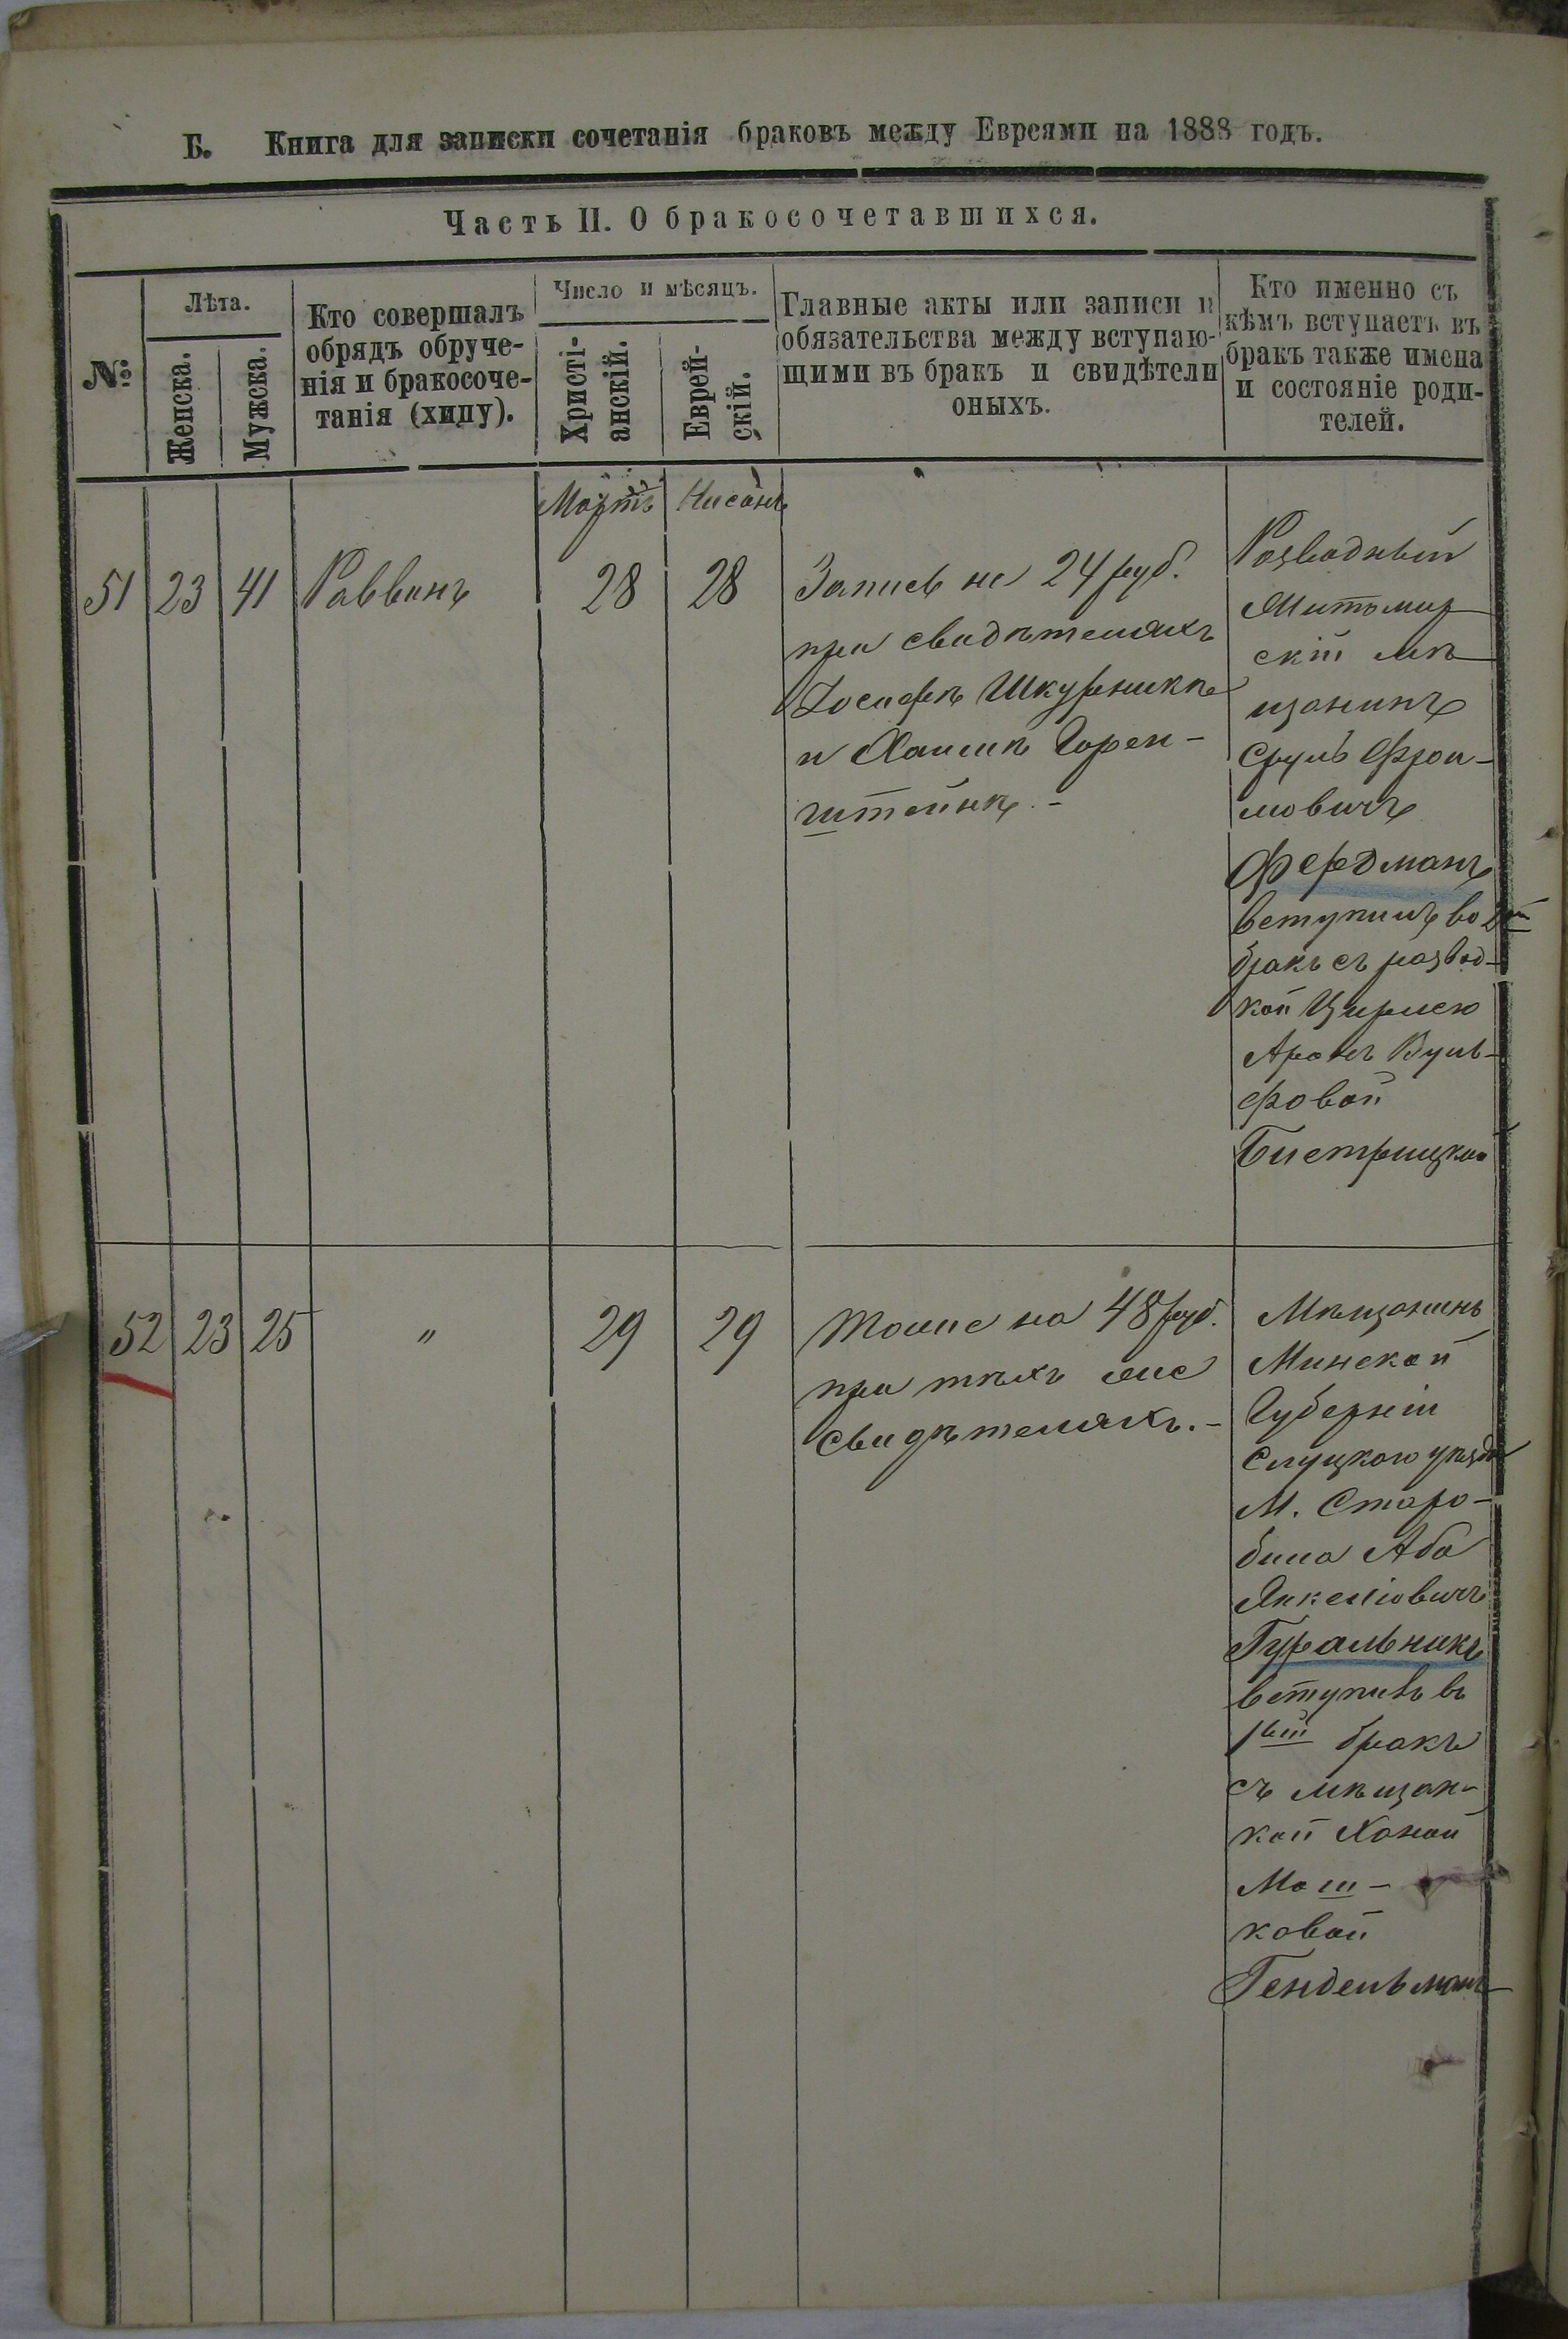 Б. Книга для записки сочетанія браковъ между Евреями на 1888 годъ.
Часть II. О бракосочетавшихся.
№
Лѣта.
Женска.
Мужска.
Кто совершалъ
обрядъ обруче-
нія и бракосоче-
танія (хипу).
Число и мѣсяцъ.
Христі-
анскій.
Еврей-
скій.
Главные акты или записи и
обязательства между вступаю-
щими въ бракъ и свидѣтели
оныхъ.
Кто именно съ
кѣмъ вступаетъ въ
бракъ также имена
и состояніе роди-
телей.
Мартъ Нисанъ
51 23 41 Раввинъ 28 28
Запись на 24 руб.
при свидѣтеляхъ
Іосифѣ Шкурникѣ
и Хаимѣ Горен-
штейнѣ.-
Розводный
Житомир
скій мѣ
щанинъ
Сруль Фрои-
мовичъ
Фердманъ
вступилъ во 2й
бракъ съ развод-
кой Цирлею
Аронъ Вуль-
фовой
Бистрицкой
52 23 25 " 29 29
Тоже на 48 руб.
при тѣхъ же
свидѣтеляхъ.-
Мѣщанинъ
Минской
Губерніи
Слуцкаго уѣзда
М. Старо-
бина Аба
Янкеліовичъ
Гуральникъ
вступилъ въ
1ый бракъ
съ мѣщан-
кой Ханой
Мош-
ковой
Гендельманъ